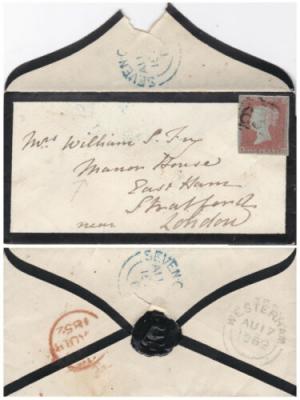 SEVENO
AU 17
Mrs William S. Fry
Manor House
East Ham
Stratford
near London
SEVENO
AU 17
WESTERHAM
AU 17
1852
1852